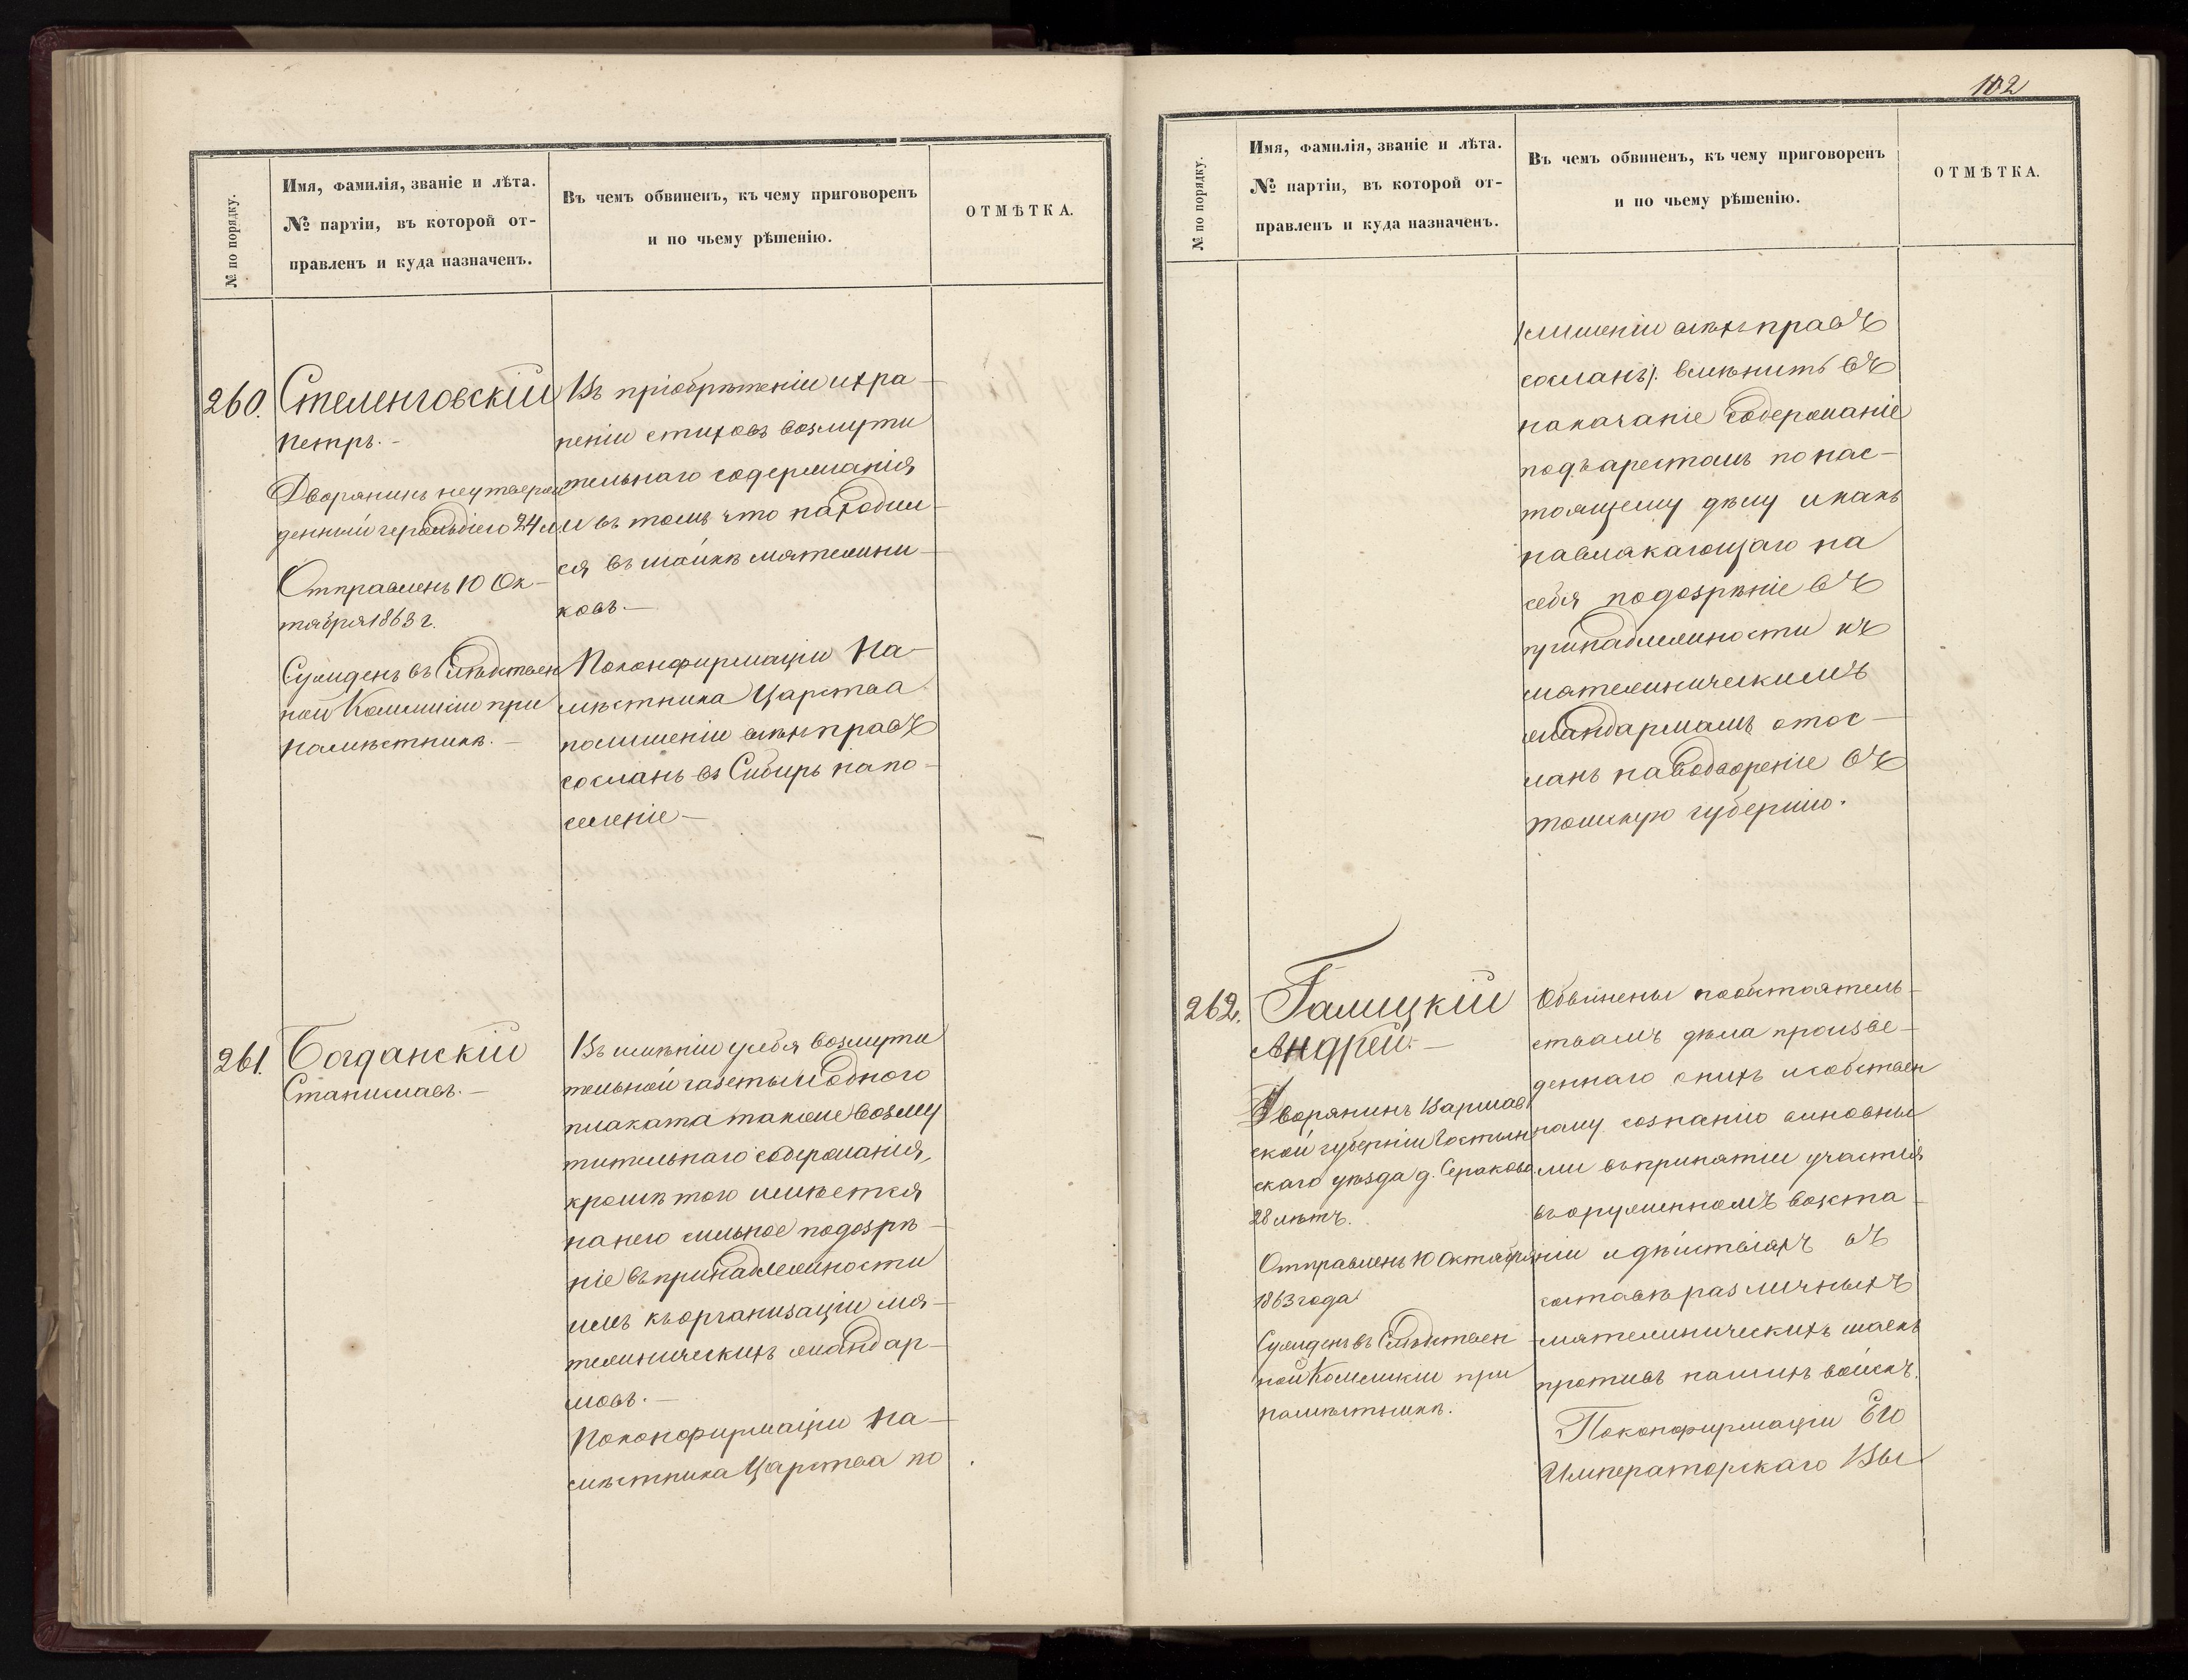 № по порядку.
Имя, фамилія, званіе и лѣта.
№ партіи, въ которой от-
правленъ и куда назначенъ.
Въ чемъ обвиненъ, къ чему приговоренъ
и по чьему рѣшенію.
ОТМѢТКА.
260.
Стеленговскій
Петръ. -
Дворянинъ неутверж
денный герольдіею 24 л
Отправленъ 10 Ок-
тября 1863 г.
Сужденъ въ Слѣдствен
ной Коммисіи при
Намѣстникѣ. -
Въ пріобрѣтеніи и хра-
неніи стиховъ возмути
тельнаго содержанія
и въ томъ что находил-
ся въ шайкѣ мятежни-
ковъ. -
По конфирмаціи На-
мѣстника Царства
по лишеніи всѣхъ правъ
сосланъ въ Сибирь на по-
селеніе -
261.
Богданскій
Станиславъ. -
Въ имѣніи у себя возмути
тельной газеты и одного
плаката также возму
тительнаго содержанія,
кромѣ того имѣется
на него сильное подозрѣ-
ніе въ принадлежности
имъ къ организаціи мя-
тежническихъ жандар-
мовъ. -
По конфирмаціи На-
мѣстника Царства по
102
№ по порядку.
Имя, фамилія, званіе и лѣта.
№ партіи, въ которой от-
правленъ и куда назначенъ.
Въ чемъ обвиненъ, къ чему приговоренъ
и по чьему рѣшенію.
ОТМѢТКА.
лишеніи всѣхъ правъ
сосланъ/. вмѣнить въ
наказаніе содержаніе
подъ арестомъ по нас-
тоящему дѣлу и какъ
навлакающаго на
себя подозрѣніе въ
принадлежности къ
мятежническимъ
жандармамъ отос-
ланъ на водвореніе въ
томскую губернію.
262.
Галицкій
Андрей. -
Дворянинъ Варшав
ской губерніи Гостын
скаго уѣзда д. Сераково
28 лѣтъ.
Отправленъ 10 Октября
1863 года
Сужденъ въ Слѣдствен
ной Коммисіи при
намѣстникѣ.
Обвинены по обстоятель-
ствамъ дѣла произве-
деннаго о нихъ и собствен
ному сознанію виновны
ми въ принятіи участія
въ оруженномъ возста-
ніи и дѣйствіяхъ въ
составѣ различныхъ
мятежническихъ шаекъ
противъ нашихъ войскъ.
По конфирмаціи Его
Императорскаго Вы